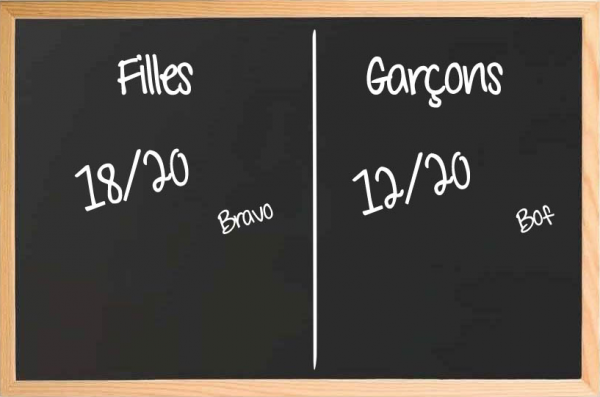 Filles
18/20
Bravo
Garçons
12/20
Bof